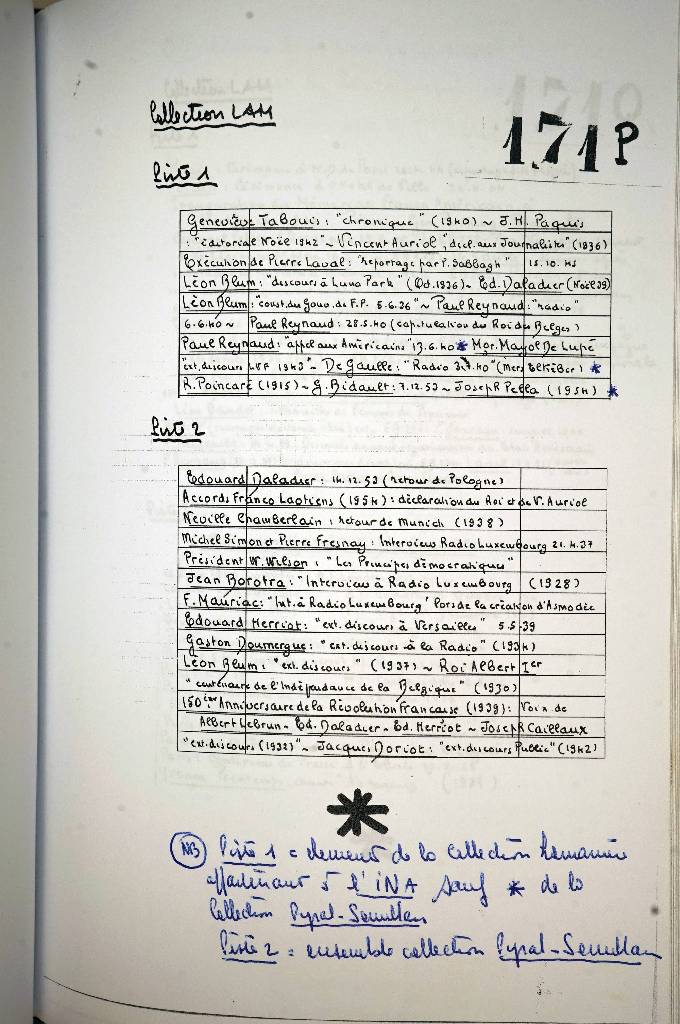 Collection LAM
171P
Piste 1
Geneviève Tabouis : "chronique" (1940) ~ J.H. Paquis
: "éditorial Noël 1942" ~ Vincent Auriol, "décl. aux Journalistes" (1936)
Exécution de Pierre Laval : "reportage par P. Sabbagh" 15.10.45
Léon Blum : "discours à Luna Park" (Oct. 1936) ~ Ed. Daladier (Noël 39)
Léon Blum : "const. du Gouv. de F.P. 5.6.36" ~ Paul Reynaud : "radio"
6.6.40 ~ Paul Reynaud : 28.5.40 (capitulation du Roi des Belges)
Paul Reynaud : "appel aux Américains" 13.6.40 * Mgr. Mayol De Lupé
"ext. discours LVF 1943" ~ De Gaulle : "Radio 3.7.40" (Mers Elkébir) *
R. Poincaré (1915) ~ G. Bidault : 7.12.53 ~ Joseph Pella (1954) *
Piste 2
Edouard Daladier : 14.12.53 (retour de Pologne)
Accords Franco Laotiens (1954) : déclaration du Roi et de V. Auriol
Neville Chamberlain : retour de Munich (1938)
Michel Simon et Pierre Fresnay : Interview Radio Luxembourg 21.4.37
Président W. Wilson : "Les Principes démocratiques"
Jean Borotra : "Interview à Radio Luxembourg (1928)
F. Mauriac : "Int. à Radio Luxembourg" lors de la création d'Asmodée
Edouard Herriot : "ext. discours à Versailles" 5.5.39
Gaston Doumergue : "ext. discours à la Radio" (1934)
Léon Blum : "ext. discours" (1937) ~ Roi Albert Ier
"centenaire de l'Indépendance de la Belgique" (1930)
150ème Anniversaire de la Révolution Française (1939) : Voix de
Albert Lebrun - Ed. Daladier - Ed. Herriot ~ Joseph Caillaux
"ext. discours (1932)" ~ Jacques Doriot : "ext. discours Public" (1942)
*
NB Piste 1 = élements de la collection
appartenant à l'INA sauf * de la
Collection Pyral-Semullan
Piste 2 = ensemble collection Pyral-Semullan